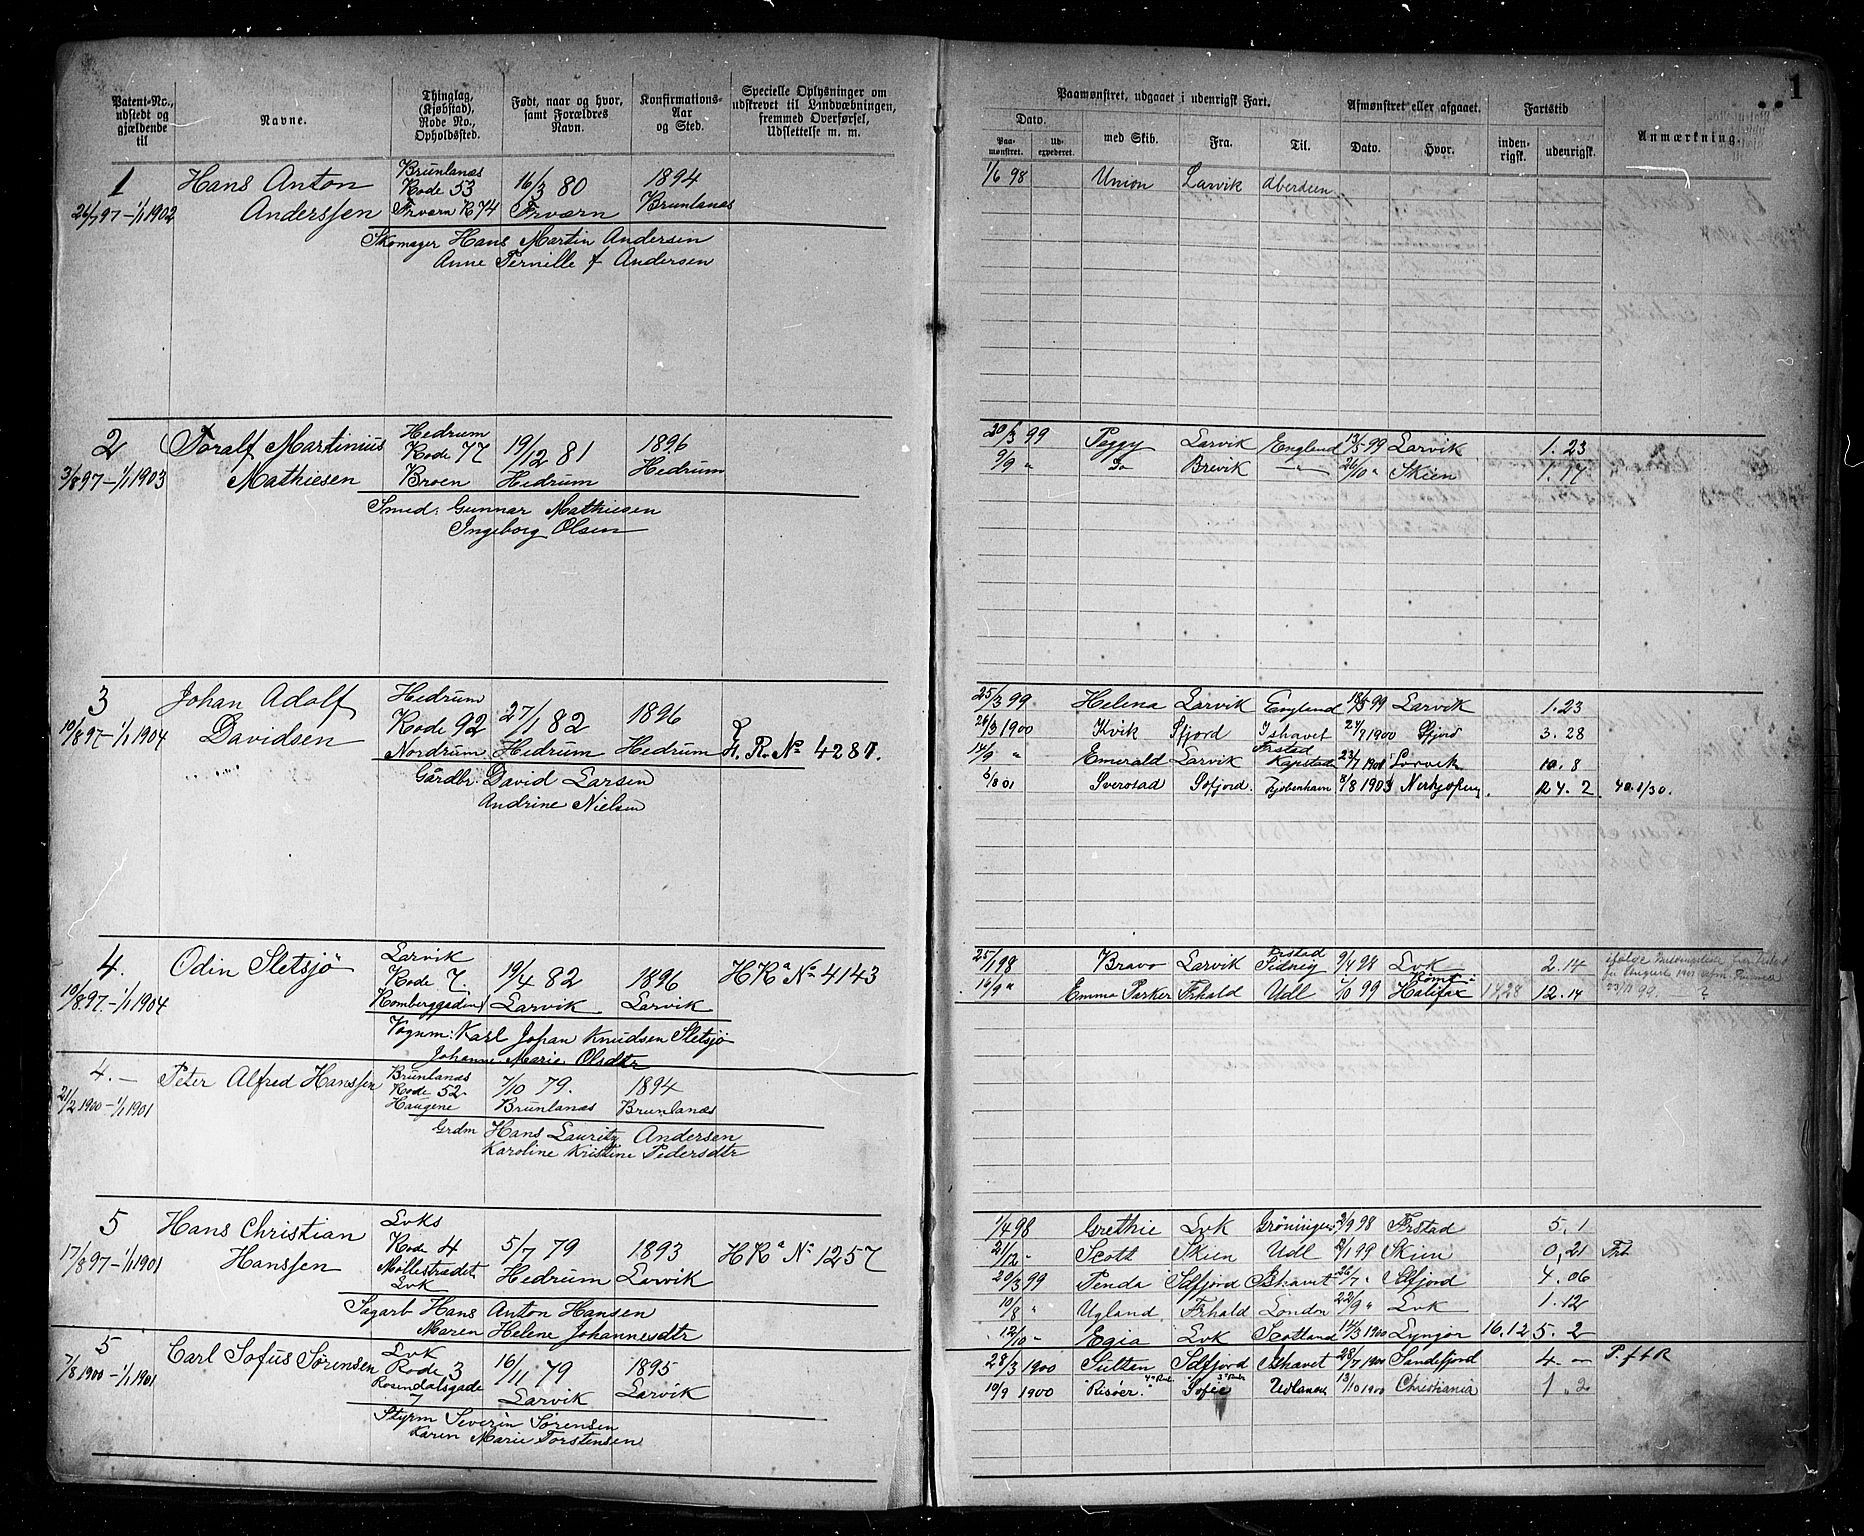 1
Patent-No., udstedt og gjældende til
Navne.
Thinglag, (Kjøbstad), Rode No., Opholdssted.
Født, naar og hvor, samt Forældres Navn.
Konfirmations- Aar og Sted.
Specielle Oplysninger om udskrevet til Lindvæbningen, fremmed Overførsel, Udslettelse m. m.
Paamønstret, udgaaet i udenrigsk Fart.
Dato.
Paa- mønstret.
Ud- expederet.
med Skib.
Fra.
Til.
Afmønstret eller afgaaet.
Dato.
Hvor.
Fartstid
inden- rigsk.
udenrigsk.
Anmærkning.
1 Hans Anton Brunlanæs 16/3 80 1894
26/7 97 – 1/1 1902 Anderssen Rode 53 Brunlanæs
Skomager Hans Martin Andersen
Anne Pernille f Andersen
1/6 98 Union Larvik Aberdeen
2 Toralf Martinius Hedrum 19/12 81 1896
3/8 97 – 1/1 1903 Mathiesen Rode 77 Broen Hedrum Hedrum
Smed. Gunnar Mathiesen
Ingeborg Olsen
20/3 99 Peggy Larvik England 13/5 99 Larvik 1. 23
9/9 " Do Brevik " 26/10 " Skien 1. 17
3 Johan Adolf Hedrum 27/1 82 1896
10/8 97 – 1/1 1904 Davidsen Rode 92 Nordrum Hedrum Hedrum H. R. No 4287.
Gårdbr. David Larsen
Andrine Nielsen
25/3 99 Helena Larvik England 18/5 99 Larvik 1. 23
26/3 1900 Kvik Sfjord Ishavet 24/7 1900 Sfjord 3. 28
14/9 " Emerald Larvik Frstad Kapstad 23/7 1901 Larvik 10. 8
6/8 01 Sverstad Sfjord Kjøbenhavn 8/8 1903 24. 2
4. Odin Sletsjö Larvik 19/4 82 1896 H Ra No 4143
10/8 97 – 1/1 1904 Rode 7. Larvik Larvik
Romberggaden
Vognm: Karl Johan Knudsen Sletsjö
Johanne Marie Olsdtr
25/1 98 Bravo Larvik Frstad Sidney 9/4 98 Lvk 2. 14
16/9 " Emma Parker Frhald Udl /10 99 Rømt i Halifax 12. 14
4. – Peter Alfred Hanssen Brunlanæs 7/10 79. 1894
21/2 1900 – 1/1 1901 Rode 52 Haugene Brunlanæs Brunlanæs
Grdm Hans Lauritz Andersen
Karoline Kristine Pedersdtr
5 Hans Christian Lvks 5/7 79 1893 H Ra No 1257
17/8 97 – 1/1 1901 Hanssen Rode 4 Möllestrædet Lvk Hedrum Larvik
Sagarb Hans Anton Hansen
Maren Helene Johannesdtr
1/4 98 Grethie Lvk Gröningen 3/9 98 Frstad 5. 1
21/12 " Scott Skien Udl /1 99 Skien 0, 21
20/3 99 Penda Sdfjord Ishavet 26/7 " Sdfjord 4. 06
10/8 " Ugland Frhald London 22/9 " Lvk 1. 12
12/10 " Egia Lvk Scotland 14/3 1900 Lyngör 16. 12 5. 2
5 Carl Sofus Sørensen Lvk 16/11 79 1895
7/8 1900 – 1/1 1901 Rode 3 Rosendalsgade 7 Larvik Larvik
Styrm Severin Sørensen
Karen Marie Torstensen
28/3 1900 Sulten Sdfjord Ishavet 28/7 1900 Sandefjord 4 –
10/9 1900 "Risöer" Sofie Udlandet 13/10 1900 Christiania 1 " 2